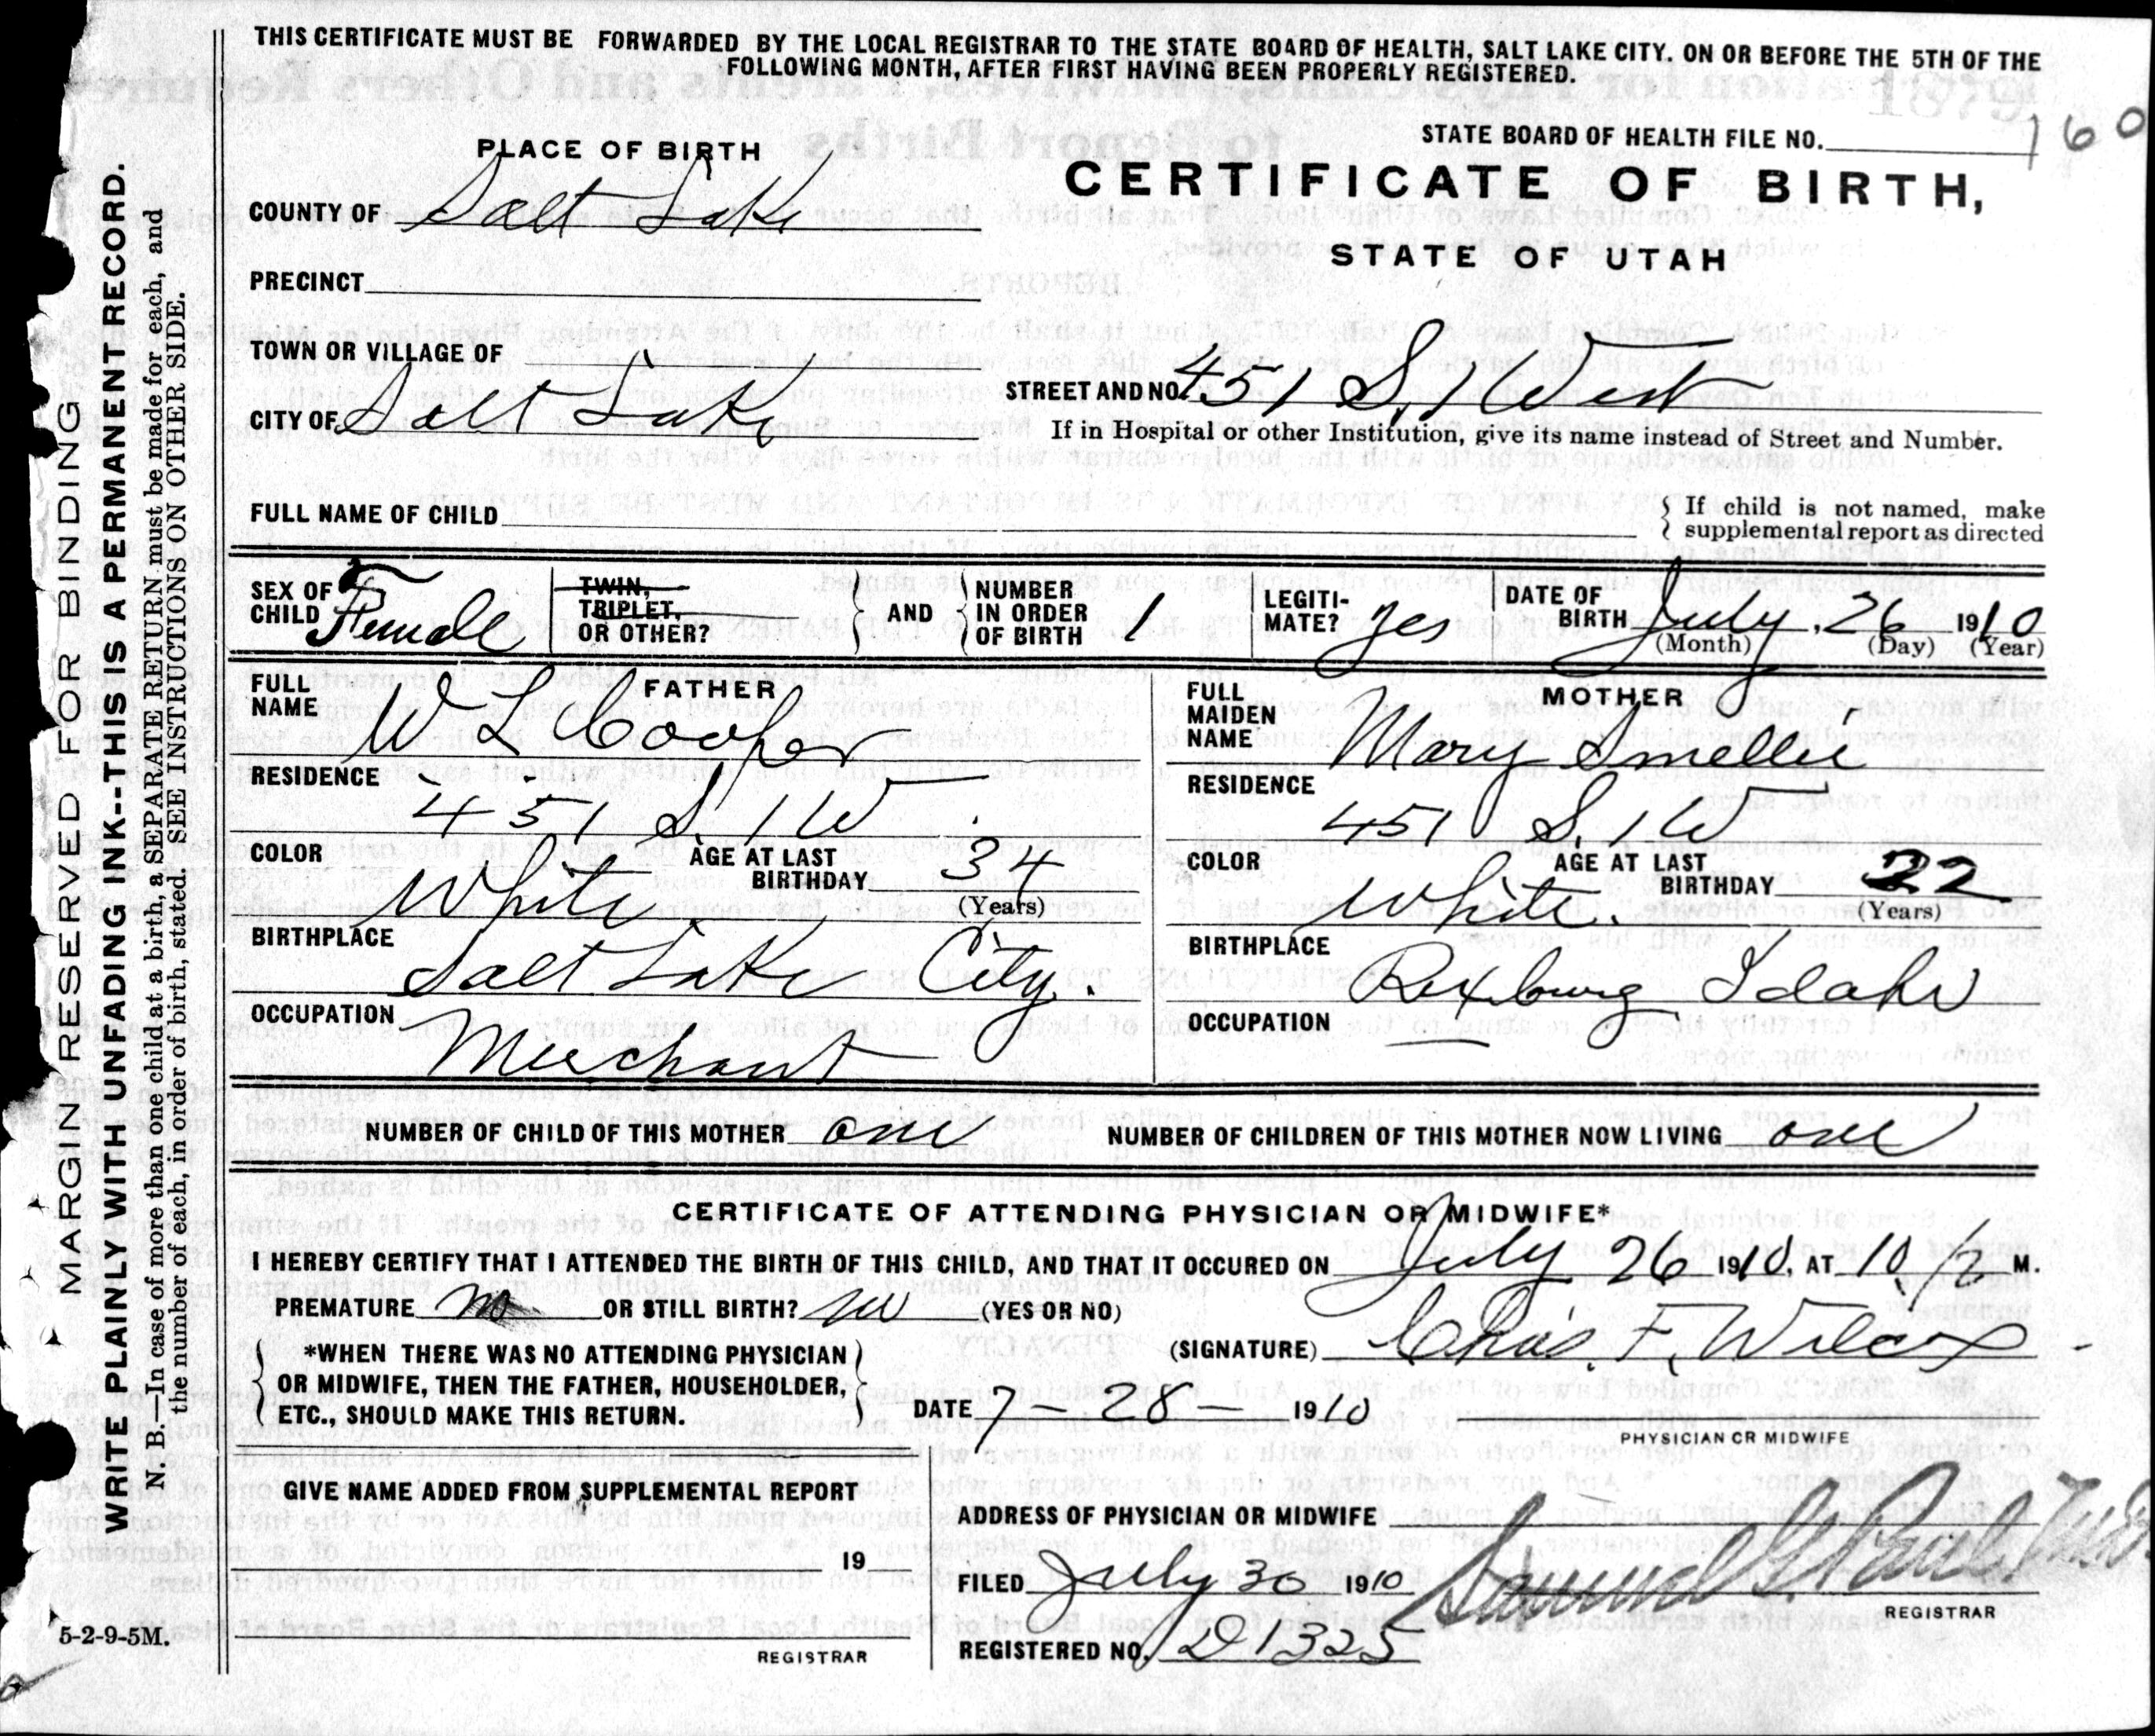 THIS CERTIFICATE MUST BE FORWARDED BY THE LOCAL REGISTRAR TO THE STATE BOARD OF HEALTH, SALT LAKE CITY. ON OR BEFORE THE 5TH OF THE
FOLLOWING MONTH, AFTER FIRST HAVING BEEN PROPERLY REGISTERED.
STATE BOARD OF HEALTH FILE NO. 160
PLACE OF BIRTH
CERTIFICATE OF BIRTH,
STATE OF UTAH
COUNTY OF Salt Lake
PRECINCT
TOWN OR VILLAGE OF
CITY OF Salt Lake
STREET AND NO. 451 S. 1 West
If in Hospital or other Institution, give its name instead of Street and Number.
FULL NAME OF CHILD
If child is not named, make
supplemental report as directed
SEX OF CHILD Female
TWIN, TRIPLET, OR OTHER?
AND
NUMBER IN ORDER OF BIRTH 1
LEGITIMATE? Yes
DATE OF BIRTH July, 26 1910
(Month) (Day) (Year)
FATHER
FULL NAME W L Cooper
RESIDENCE 451 S. 1 W
COLOR White
AGE AT LAST BIRTHDAY 34
(Years)
BIRTHPLACE Salt Lake City.
OCCUPATION Merchant
MOTHER
FULL MAIDEN NAME Mary Smellie
RESIDENCE 451 S. 1 W
COLOR White.
AGE AT LAST BIRTHDAY 22
(Years)
BIRTHPLACE Rexburg Idaho
OCCUPATION —
NUMBER OF CHILD OF THIS MOTHER one
NUMBER OF CHILDREN OF THIS MOTHER NOW LIVING one
CERTIFICATE OF ATTENDING PHYSICIAN OR MIDWIFE*
I HEREBY CERTIFY THAT I ATTENDED THE BIRTH OF THIS CHILD, AND THAT IT OCCURED ON July 26 1910, AT 10 1/2 M.
PREMATURE no OR STILL BIRTH? no (YES OR NO)
(SIGNATURE) Chas. F. Wilcox
*WHEN THERE WAS NO ATTENDING PHYSICIAN
OR MIDWIFE, THEN THE FATHER, HOUSEHOLDER,
ETC., SHOULD MAKE THIS RETURN.
DATE 7-28- 1910
PHYSICIAN OR MIDWIFE
GIVE NAME ADDED FROM SUPPLEMENTAL REPORT
19
REGISTRAR
ADDRESS OF PHYSICIAN OR MIDWIFE
FILED July 30 1910 Samuel G. Paul
REGISTRAR
REGISTERED NO. D1325
MARGIN RESERVED FOR BINDING
WRITE PLAINLY WITH UNFADING INK--THIS IS A PERMANENT RECORD.
N. B.—In case of more than one child at a birth, a SEPARATE RETURN must be made for each, and
the number of each, in order of birth, stated. SEE INSTRUCTIONS ON OTHER SIDE.
5-2-9-5M.